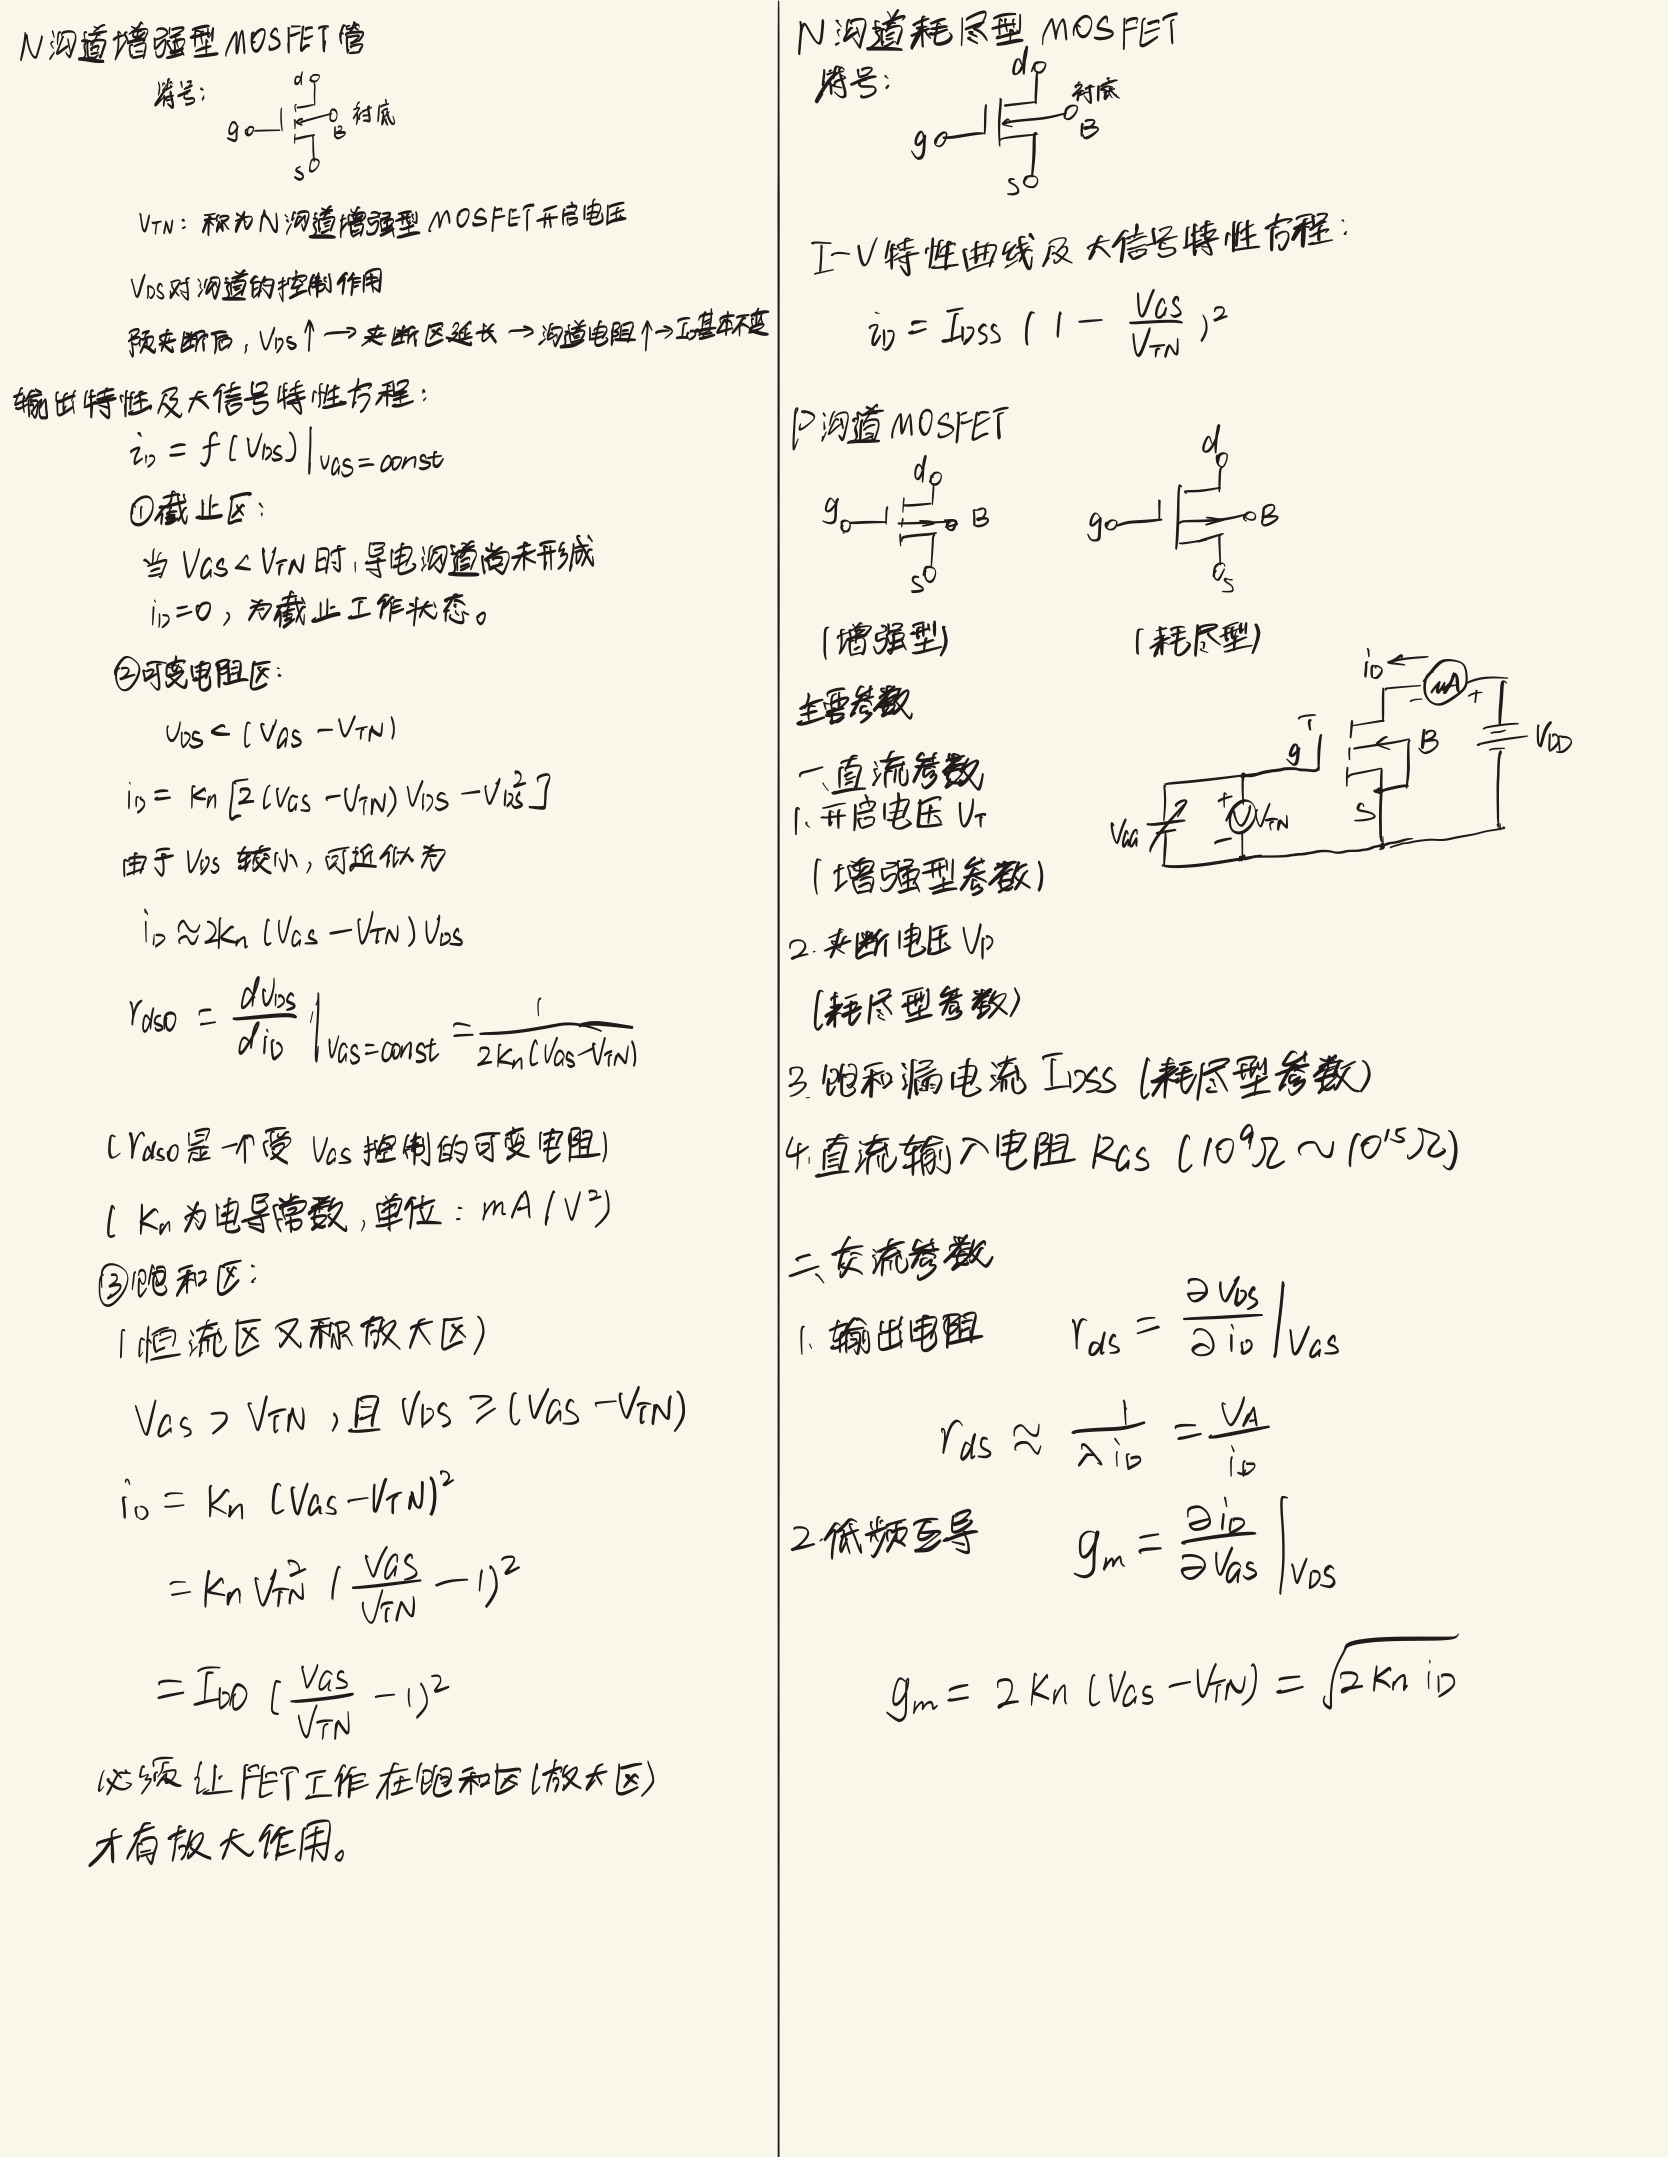 N沟道增强型MOSFET管
符号:
d
g
B 衬底
s
VTN: 称为N沟道增强型MOSFET开启电压
VDS对沟道的控制作用
预夹断后, VDS↑→夹断区延长→沟道电阻↑→ID基本不变
输出特性及大信号特性方程:
iD = f(VDS)|VGS=const
①截止区:
当 VGS < VTN 时, 导电沟道尚未形成
iD=0, 为截止工作状态。
②可变电阻区:
VDS < (VGS - VTN)
iD = Kn[2(VGS - VTN)VDS - VDS²]
由于 VDS 较小, 可近似为
iD ≈ 2Kn(VGS - VTN)VDS
rdso = dVDS/diD |VGS=const = 1/2Kn(VGS-VTN)
(rdso是一个受 VGS 控制的可变电阻)
(Kn为电导常数, 单位: mA/V²)
③饱和区:
(恒流区又称放大区)
VGS > VTN, 且 VDS ≥ (VGS - VTN)
iD = Kn (VGS-VTN)²
= Kn VTN² (VGS/VTN - 1)²
= IDO (VGS/VTN - 1)²
必须让FET工作在饱和区(放大区)
才有放大作用。
N沟道耗尽型 MOSFET
符号:
d
衬底
g
B
s
I-V特性曲线及大信号特性方程:
iD = IDSS (1 - VGS/VTN)²
P沟道MOSFET
d
g
B
s
d
g
B
s
(增强型) (耗尽型)
主要参数
一、直流参数
1. 开启电压 VT
(增强型参数)
iD
mA
- +
T
g
B
VDD
S
VGG
+
VTN
-
2. 夹断电压 VP
(耗尽型参数)
3. 饱和漏电流 IDSS (耗尽型参数)
4. 直流输入电阻 RGS (10⁹Ω ~ 10¹⁵Ω)
二、交流参数
1. 输出电阻 rds = ∂VDS/∂iD |VGS
rds ≈ 1/λiD = VA/iD
2. 低频互导 gm = ∂iD/∂VGS |VDS
gm = 2Kn(VGS - VTN) = √2KniD